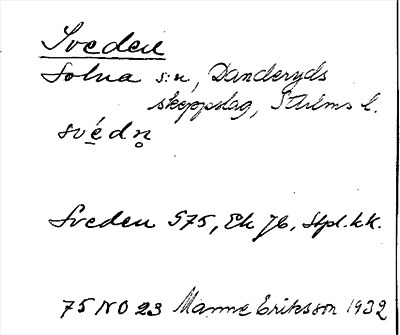 Sveden
Solna s:n, Danderyds
skeppslag, Sthlms l.
své̲dn̥
Sveden 575, Ek Jb, Stpl. k k.
75 NO 23 Manne Eriksson 1932